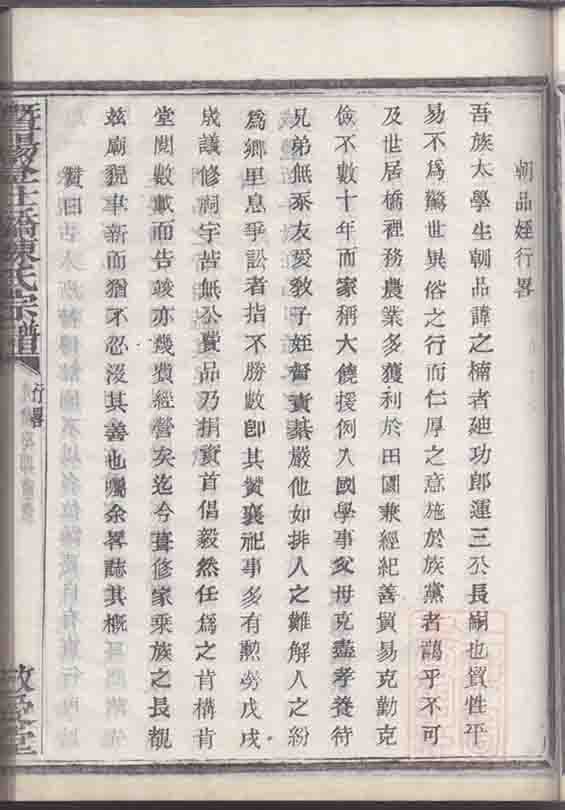 朝品姪行畧
吾族太學生朝品諱之楠者廸功郎運三公長嗣也賀性平
易不爲驚世異俗之行而仁厚之意施於族黨者藹乎不可
及世居橋裡務農業多獲利於田園兼經紀善貿易克勤克
儉不數十年而家稱大饒援例入國學事父母克盡孝養待
兄弟無乖友愛敎子姪督責綦嚴他如排人之難解人之紛
爲鄉里息爭訟者指不勝數卽其贊襄祀事多有勲勞戊戌
歲議修祠宇苦無公費品乃捐貲首倡毅然任爲之肯構肯
堂閱數載而告竣亦幾費經營矣迄今葺修家乘族之長覩
玆廟貌事新而猶不忍沒其善也囑余畧誌其概
贊曰
暨陽 橋陳氏宗譜
行畧
敘倫堂